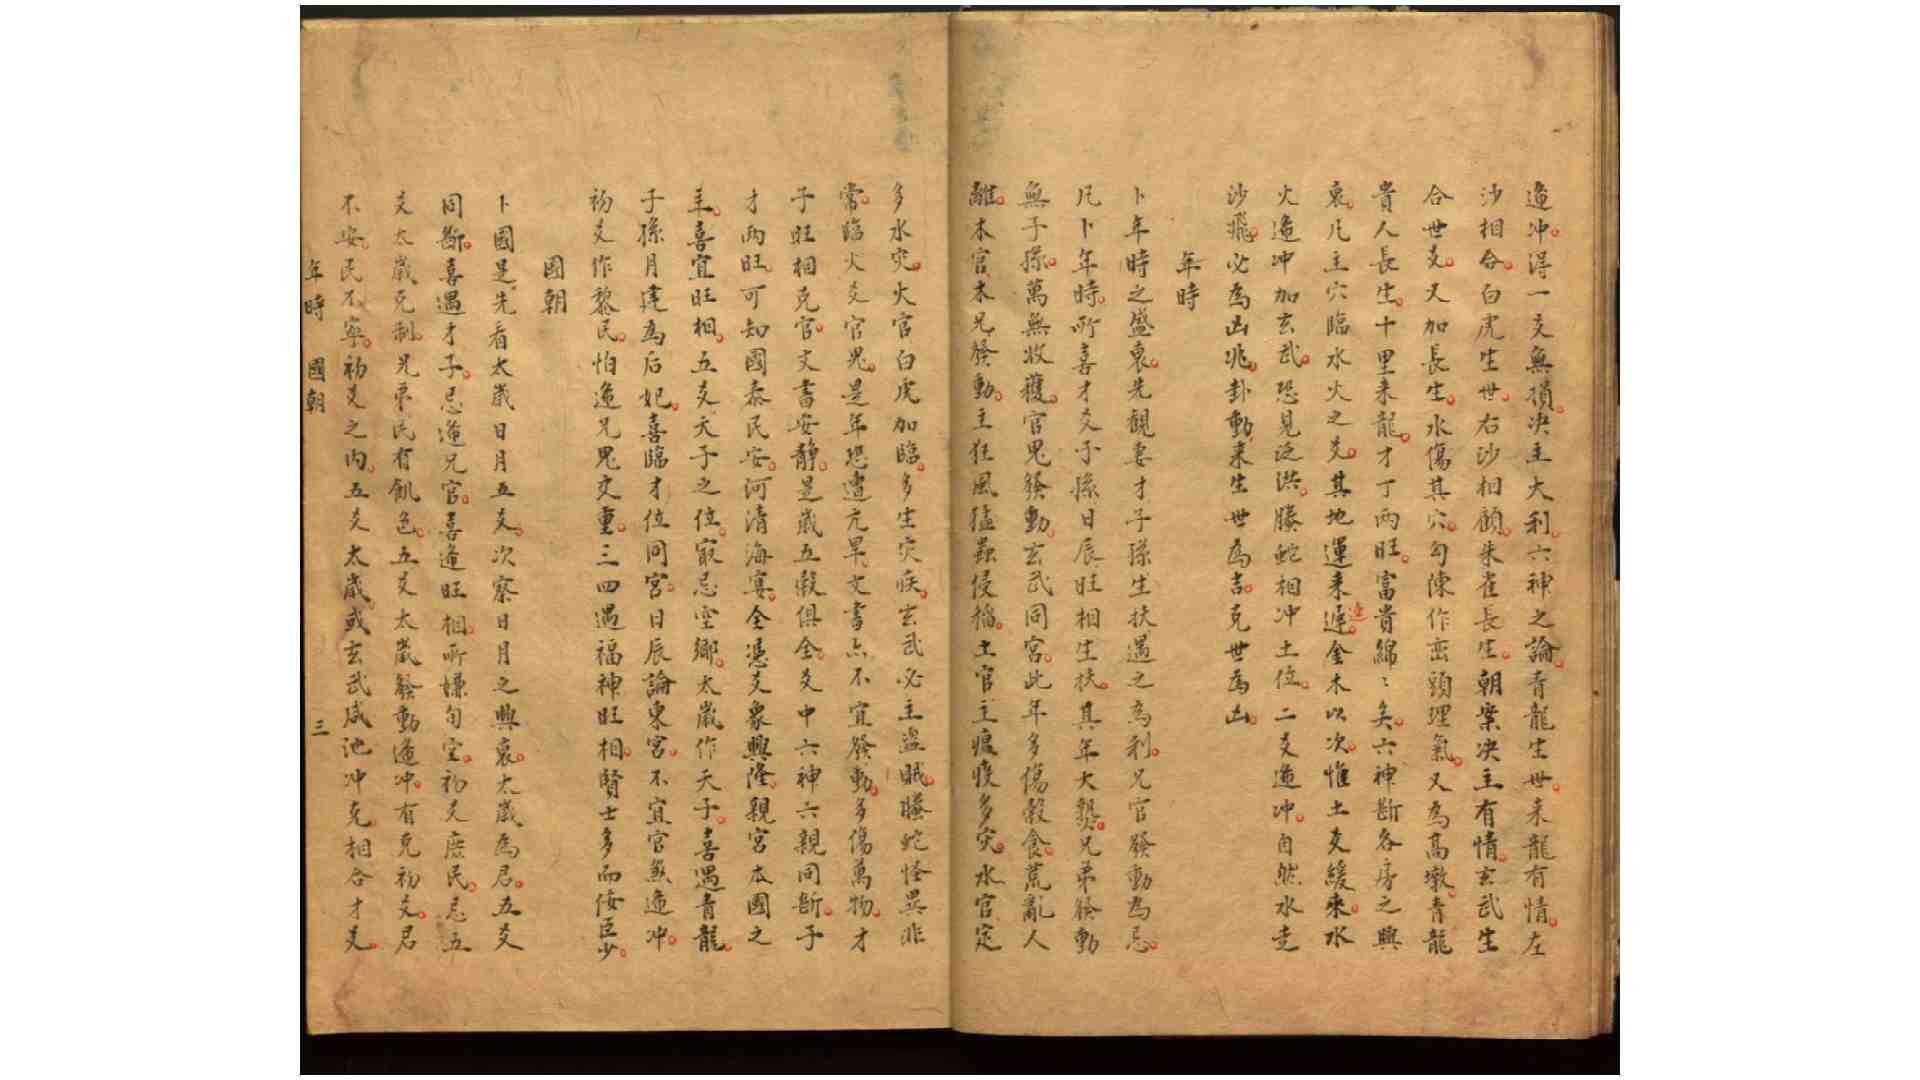 逢冲得一交無損決主大利六神之論青龍生世来龍有情左
沙相合白虎生世右沙相顧朱雀長生朝案决主有情玄武生
合世爻又加長生水傷其穴勾陳作峦頭理氣又為高墩青龍
貴人長生十里来龍才丁兩旺富貴綿〻矣六神断各房之興
衰凡主穴臨水火之爻其地運来遲金木以次惟土爻緩来水
火逢冲加玄武恐見泛洪螣蛇相冲土位二爻逢冲自然水走
沙飛必為凶兆卦動来生世為吉克世為凶
年時
卜年時之盛衰先觀妻才子孫生扶遇之為利兄官發動為忌
凡卜年時所喜才爻子孫日辰旺相生扶其年大熟兄弟發動
無子孫萬無收穫官鬼發動玄武同宮此年多傷穀食荒亂人
離木官木兄發動主狂風猛蟲侵稲土官主瘟疫多灾水官定
多水灾火官白虎加臨多生灾疾玄武必主盗賊螣蛇怪異非
常臨火爻官鬼是年恐遭亢旱文書亦不宜發動多傷萬物才
子旺相克官文書安静是歳五穀俱全爻中六神六親同断子
才两旺可知國泰民安河清海宴全憑爻象興隆親宮本國之
主喜宜旺相五爻天子之位㝡忌空鄉太歲作天子喜遇青龍
子孫月建為后妃喜臨才位同宮日辰論東宮不宜官煞逢冲
初爻作黎民怕逢兄鬼交重三四遇福神旺相賢士多而佞臣少
國朝
卜國是先看太歲日月五爻次察日月之興衰太歲為君五爻
同断喜遇才子忌逢兄官喜逢旺相所嫌旬空初爻庶民忌五
爻太歲克制兄弟民有飢色五爻太歲發動逢冲有克初爻君
不安民不寧初爻之内五爻太歲或玄武咸池冲克相合才爻
年時　國朝　三